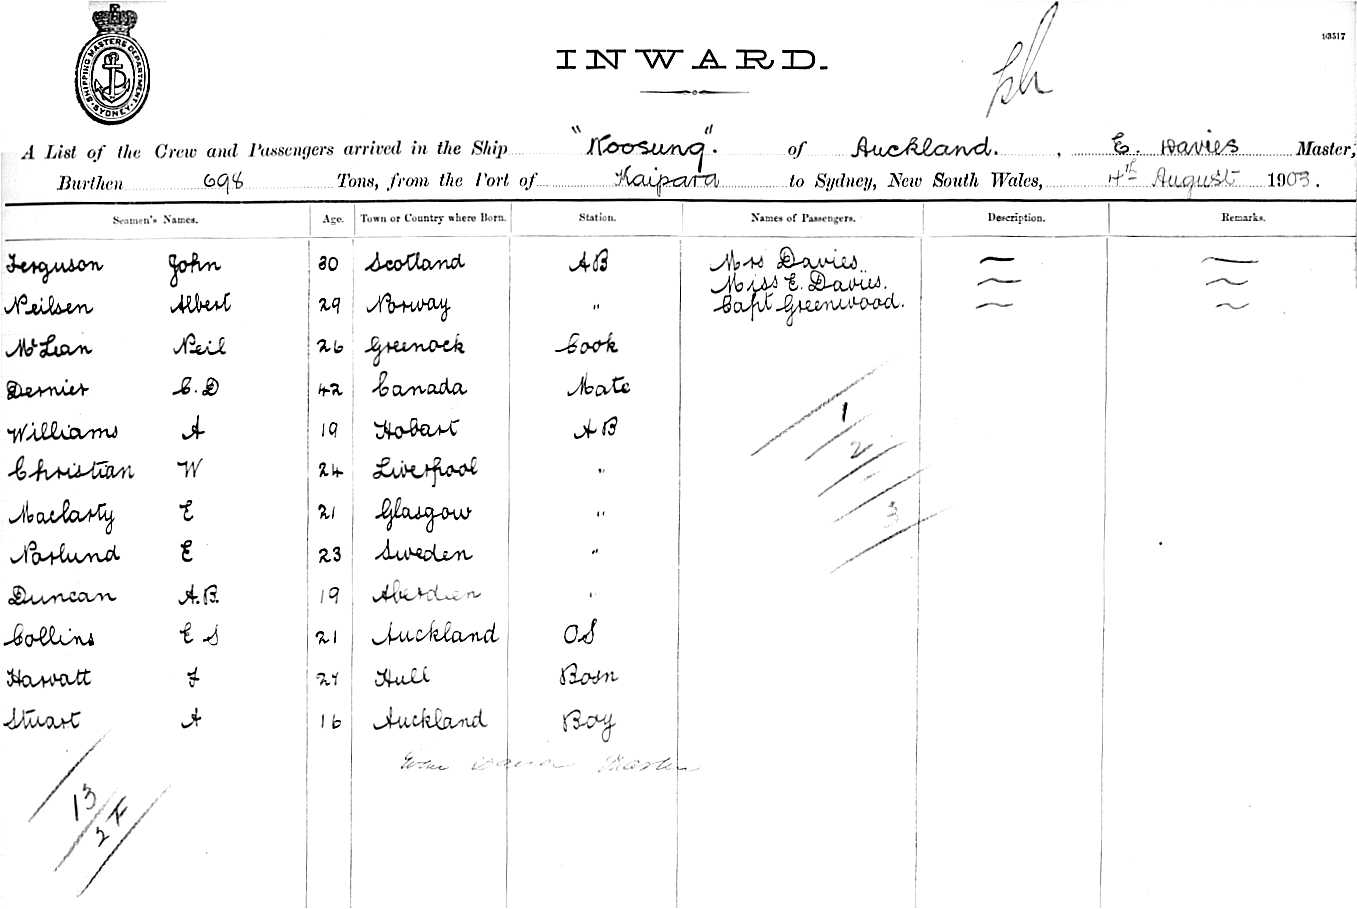 SHIPPING MASTERS DEPARTMENT SYDNEY
INWARD.
A List of the Crew and Passengers arrived in the Ship "Koosung". of Auckland. , E. Davies Master,
Burthen 698 Tons, from the Port of Kaipara to Sydney, New South Wales, 4th August 1903.
Seamen's Names. Age. Town or Country where Born. Station. Names of Passengers. Description. Remarks.
Ferguson John 30 Scotland AB Mrs Davies. —
Miss E. Davies. —
Neilsen Albert 29 Norway " Capt Greenwood. —
McLean Neil 26 Greenock Cook
Dernier C. D 42 Canada Mate
Williams A 19 Hobart AB
Christian W 24 Liverpool "
Maclarty E 21 Glasgow "
Norlund E 23 Sweden "
Duncan A.B. 19 Aberdien "
Collins E S 21 Auckland OS
Harvatt F 27 Hull Bosn
Stuart A 16 Auckland Boy
Davies Master
1
2
3
13
2F